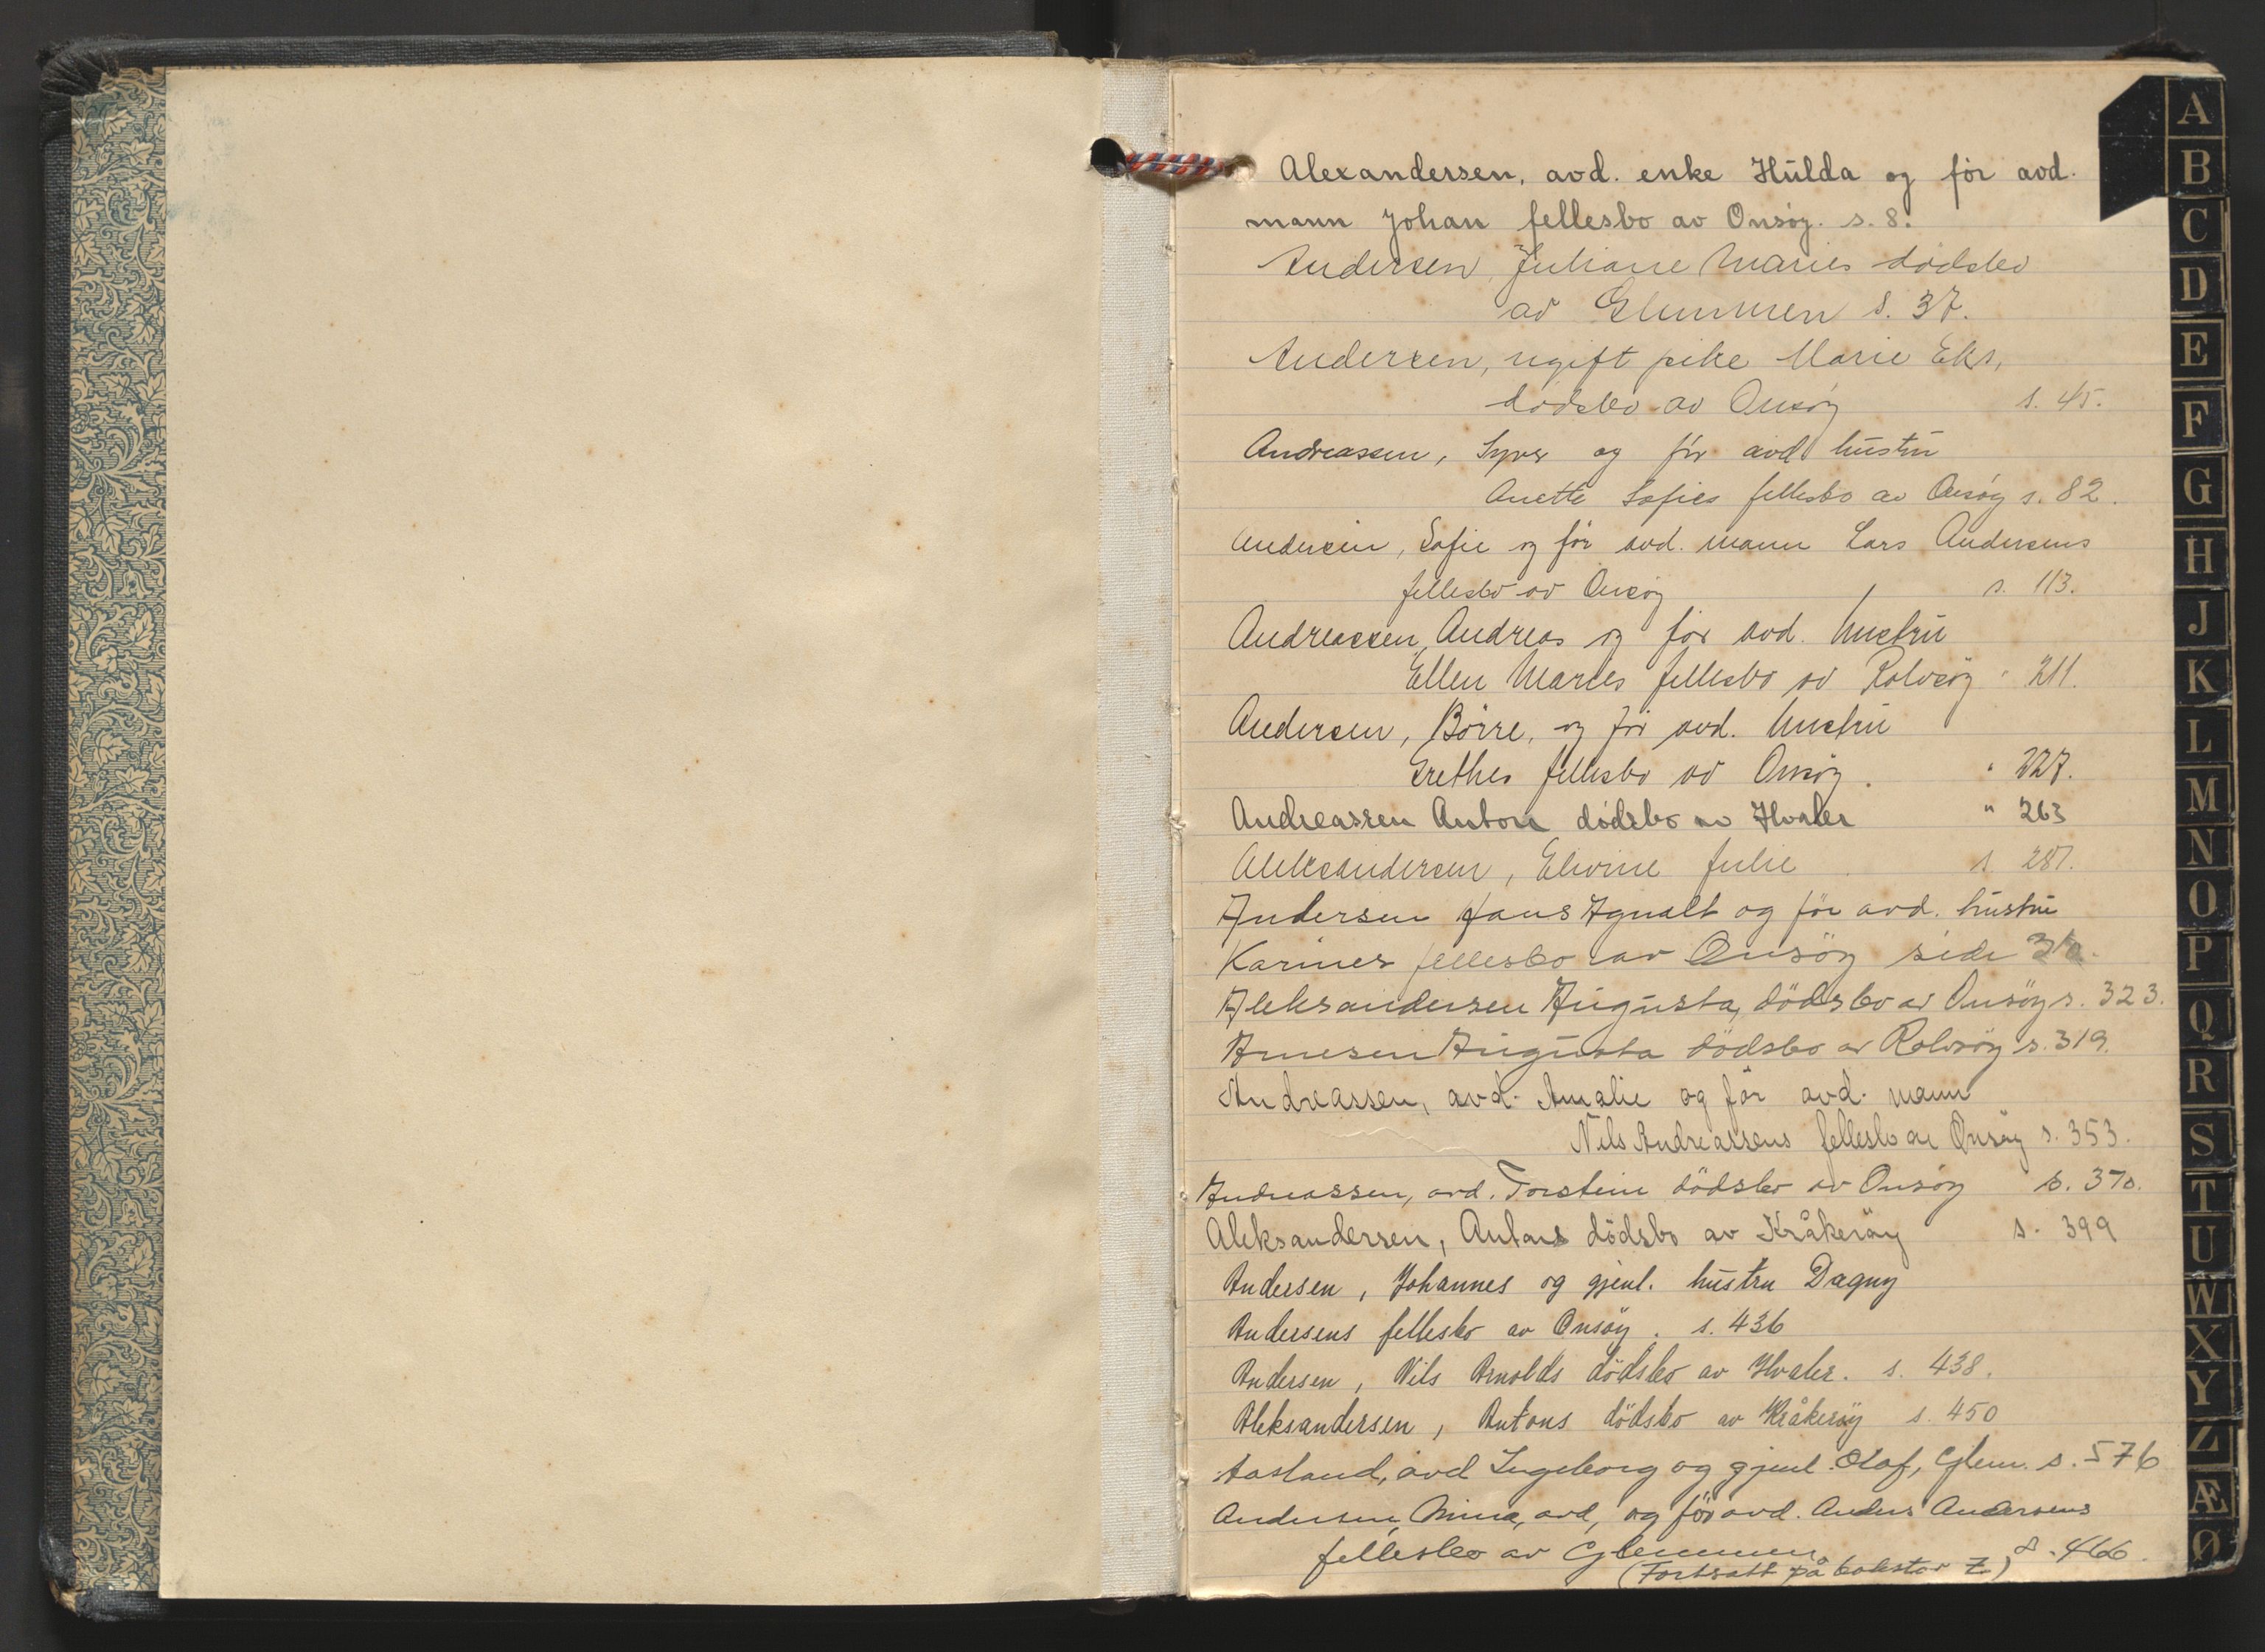 Alexandersen, avd. enke Hulda og før avd.
mann Johan fellesbo av Onsøy. s. 8.
Andersen, Juliane Maries dødsbo
av Glemmen s. 37.
Andersen, ugift pike Marie Eks,
dødsbo av Onsøy s. 45.
Andreassen, Syver og før avd hustru
Anette Sofies fellesbo av Onsøy s. 82.
Andersen, Sofie og før avd. mann Lars Andersens
fellesbo av Onsøy s. 113.
Andreassen, Andreas og før avd. hustru
Ellen Maries fellesbo av Rolvsøy " 211.
Andersen, Børre, og før avd. hustru
Grethes fellesbo av Onsøy. " 227.
Andreassen Anton dødsbo av Hvaler " 263
Aleksandersen, Elvine Julie s. 287.
Andersen Hans Agnalt og før avd. hustru
Karines fellesbo av Onsöy side
Aleksandersen Augusta, dödsbo av Onsöy s. 323.
Arnesen Augusta dödsbo av Rolvsöy s. 319.
Andreassen, avd. Amalie og før avd. mann
Nils Andreassens fellesbo av Onsøy s. 353.
Andreassen, avd. Torstein dödsbo av Onsöy s. 370.
Aleksandersen, Antons dödsbo av Kråkeröy s. 399
Andersen, Johannes og gjenl. hustru Dagny
Andersens fellesbo av Onsöy. s. 436
Andersen, Nils Arnolds dödsbo av Hvaler. s. 438.
Aleksandersen, Antons dödsbo av Kråkeröy s. 450
Aasland, avd Ingeborg og gjenl. Olaf, Glem. s. 576
Andersen, Mina, avd, og för avd. Anders Andersens
fellesbo av Glemmen s. 466.
(Fortsatt på bokstav Z)
A
B
C
D
E
F
G
H
J
K
L
M
N
O
P
Q
R
S
T
U
W
X
Y
Z
Æ
Ø